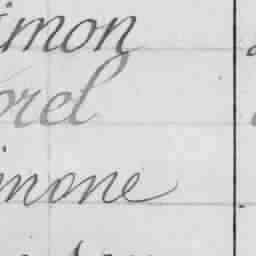 imon
orel
imone